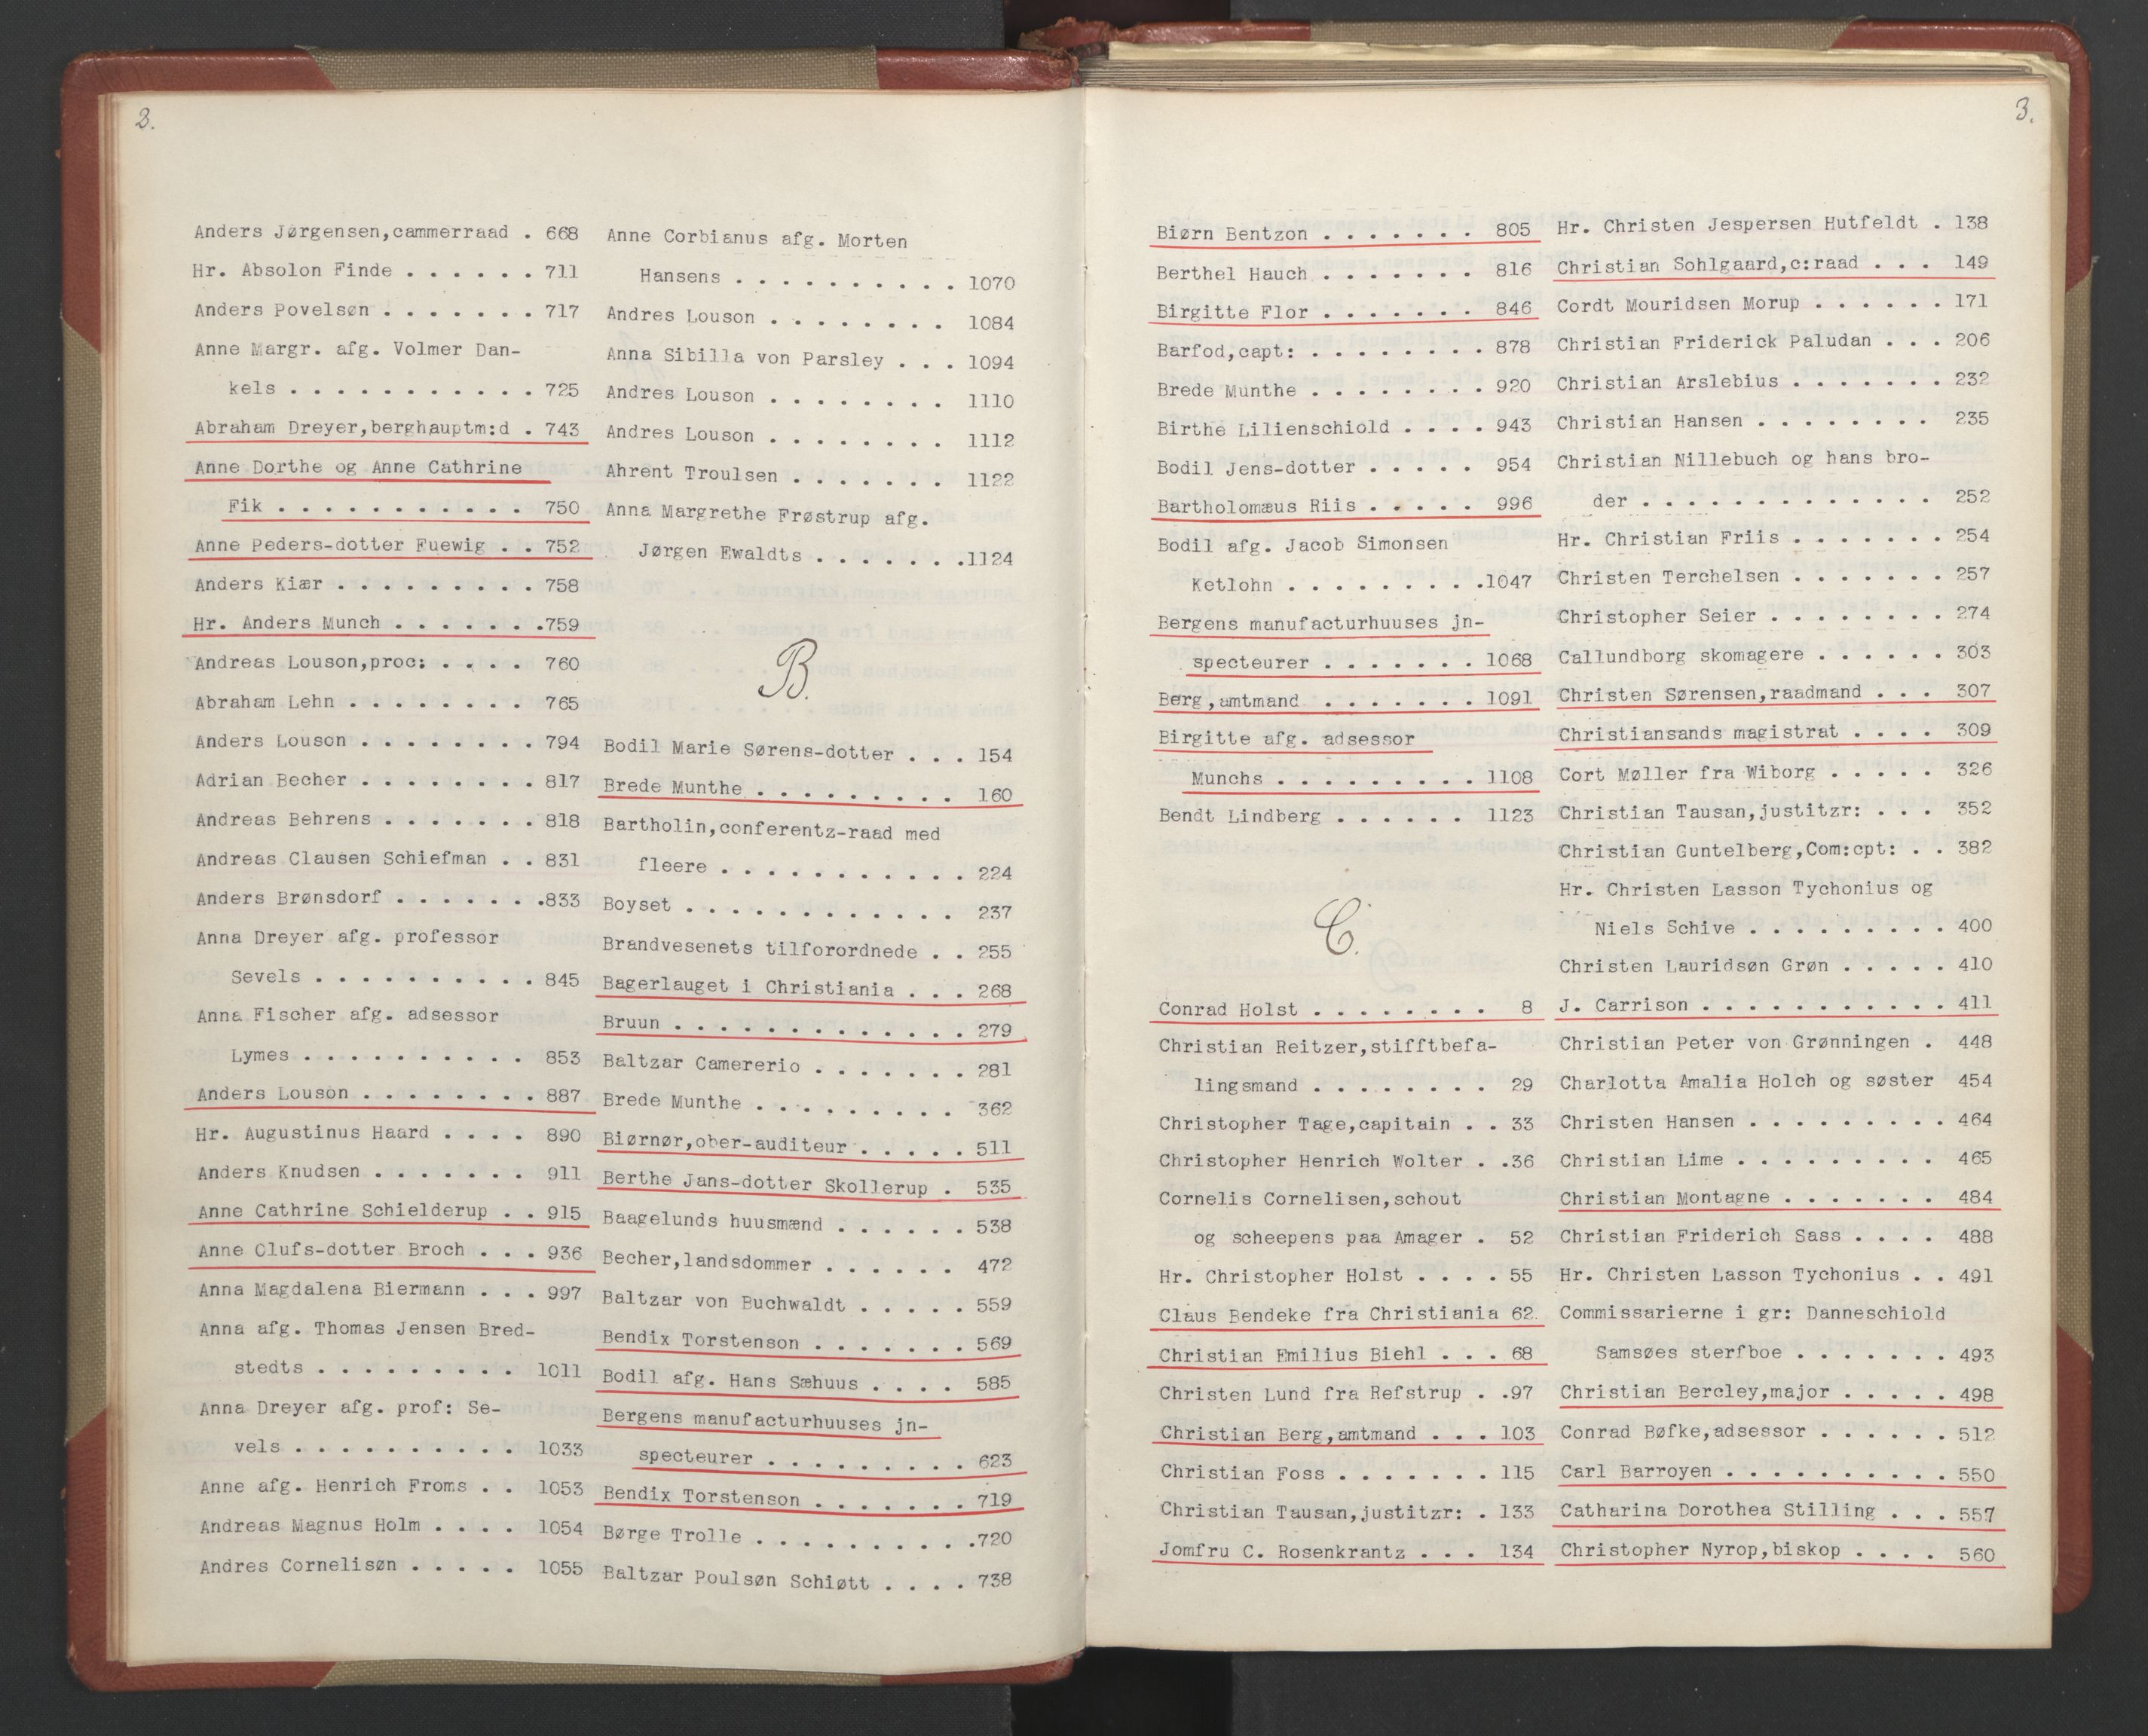 2.
Anders Jørgensen,cammerraad . 668
Hr. Absolon Finde . . . . . . 711
Anders Povelsøn . . . . . . . 717
Anne Margr. afg. Volmer Dan-
kels . . . . . . . . . . . 725
Abraham Dreyer,berghauptm:d . 743
Anne Dorthe og Anne Cathrine
Fik . . . . . . . . . . . 750
Anne Peders-dotter Fuewig . . 752
Anders Kiær . . . . . . . . . 758
Hr. Anders Munch . . . . . . .759
Andreas Louson,proc: . . . . 760
Abraham Lehn . . . . . . . . 765
Anders Louson . . . . . . . . 794
Adrian Becher . . . . . . . . 817
Andreas Behrens . . . . . . . 818
Andreas Clausen Schiefman . . 831
Anders Brønsdorf . . . . . . .833
Anna Dreyer afg. professor
Sevels . . . . . . . . . . 845
Anna Fischer afg. adsessor
Lymes . . . . . . . . . . 853
Anders Louson . . . . . . . . 887
Hr. Augustinus Haard . . . . 890
Anders Knudsen . . . . . . . 911
Anne Cathrine Schielderup . . 915
Anne Olufs-dotter Broch . . . 936
Anna Magdalena Biermann . . . 997
Anna afg. Thomas Jensen Bred-
stedts . . . . . . . . . 1011
Anna Dreyer afg. prof: Se-
vels . . . . . . . . . . 1033
Anne afg. Henrich Froms . . 1053
Andreas Magnus Holm . . . . 1054
Andres Cornelisøn . . . . . 1055
Anne Corbianus afg. Morten
Hansens . . . . . . . . . . 1070
Andres Louson . . . . . . . . 1084
Anna Sibilla von Parsley . . . 1094
Andres Louson . . . . . . . . 1110
Andres Louson . . . . . . . . 1112
Ahrent Troulsen . . . . . . . 1122
Anna Margrethe Frøstrup afg.
Jørgen Ewaldts . . . . . . .1124
B.
Bodil Marie Sørens-dotter . . . 154
Brede Munthe . . . . . . . . . 160
Bartholin,conferentz-raad med
fleere . . . . . . . . . . . 224
Boyset . . . . . . . . . . . . 237
Brandvesenets tilforordnede . . 255
Bagerlauget i Christiania . . . 268
Bruun . . . . . . . . . . . . . 279
Baltzar Camererio . . . . . . . 281
Brede Munthe . . . . . . . . . 362
Biørnør,ober-auditeur . . . . . 511
Berthe Jans-dotter Skollerup . 535
Baagelunds huusmænd . . . . . . 538
Becher,landsdommer . . . . . . 472
Baltzar von Buchwaldt . . . . . 559
Bendix Torstenson . . . . . . . 569
Bodil afg. Hans Sæhuus . . . . 585
Bergens manufacturhuuses jn-
specteurer . . . . . . . . . 623
Bendix Torstenson . . . . . . . 719
Børge Trolle . . . . . . . . . .720
Baltzar Poulsøn Schiøtt . . . . 738
3.
Biørn Bentzon . . . . . . . 805
Berthel Hauch . . . . . . . 816
Birgitte Flor . . . . . . . 846
Barfod,capt: . . . . . . . . 878
Brede Munthe . . . . . . . . 920
Birthe Lilienschiold . . . . 943
Bodil Jens-dotter . . . . . 954
Bartholomæus Riis . . . . . 996
Bodil afg. Jacob Simonsen
Ketlohn . . . . . . . . .1047
Bergens manufacturhuuses jn-
specteurer . . . . . . . 1068
Berg,amtmand . . . . . . . 1091
Birgitte afg. adsessor
Munchs . . . . . . . . . 1108
Bendt Lindberg . . . . . . 1123
C.
Conrad Holst . . . . . . . . 8
Christian Reitzer,stifftbefa-
lingsmand . . . . . . . . 29
Christopher Tage,capitain . . 33
Christopher Henrich Wolter . .36
Cornelis Cornelisen,schout
og scheepens paa Amager . 52
Hr. Christopher Holst . . . . 55
Claus Bendeke fra Christiania 62.
Christian Emilius Biehl . . . 68
Christen Lund fra Refstrup . .97
Christian Berg,amtmand . . . 103
Christian Foss . . . . . . . 115
Christian Tausan,justitzr: . 133
Jomfru C. Rosenkrantz . . . 134
Hr. Christen Jespersen Hutfeldt . 138
Christian Sohlgaard,c:raad . . . 149
Cordt Mouridsen Morup . . . . . . 171
Christian Friderick Paludan . . . 206
Christian Arslebius . . . . . . . 232
Christian Hansen . . . . . . . . 235
Christian Nillebuch og hans bro-
der . . . . . . . . . . . . . 252
Hr. Christian Friis . . . . . . . 254
Christen Terchelsen . . . . . . . 257
Christopher Seier . . . . . . . . 274
Callundborg skomagere . . . . . . 303
Christen Sørensen,raadmand . . . 307
Christiansands magistrat . . . . 309
Cort Møller fra Wiborg . . . . . 326
Christian Tausan,justitzr: . . . 352
Christian Guntelberg,Com:cpt: . . 382
Hr. Christen Lasson Tychonius og
Niels Schive . . . . . . . . . 400
Christen Lauridsøn Grøn . . . . . 410
J. Carrison . . . . . . . . . . . 411
Christian Peter von Grønningen . 448
Charlotta Amalia Holch og søster 454
Christen Hansen . . . . . . . . . 464
Christian Lime . . . . . . . . . 465
Christian Montagne . . . . . . . 484
Christian Friderich Sass . . . . 488
Hr. Christen Lasson Tychonius . . 491
Commissarierne i gr: Danneschiold
Samsøes sterfboe . . . . . . . 493
Christian Bercley,major . . . . . 498
Conrad Bøfke,adsessor . . . . . . 512
Carl Barroyen . . . . . . . . . . 550
Catharina Dorothea Stilling . . . 557
Christopher Nyrop,biskop . . . . 560